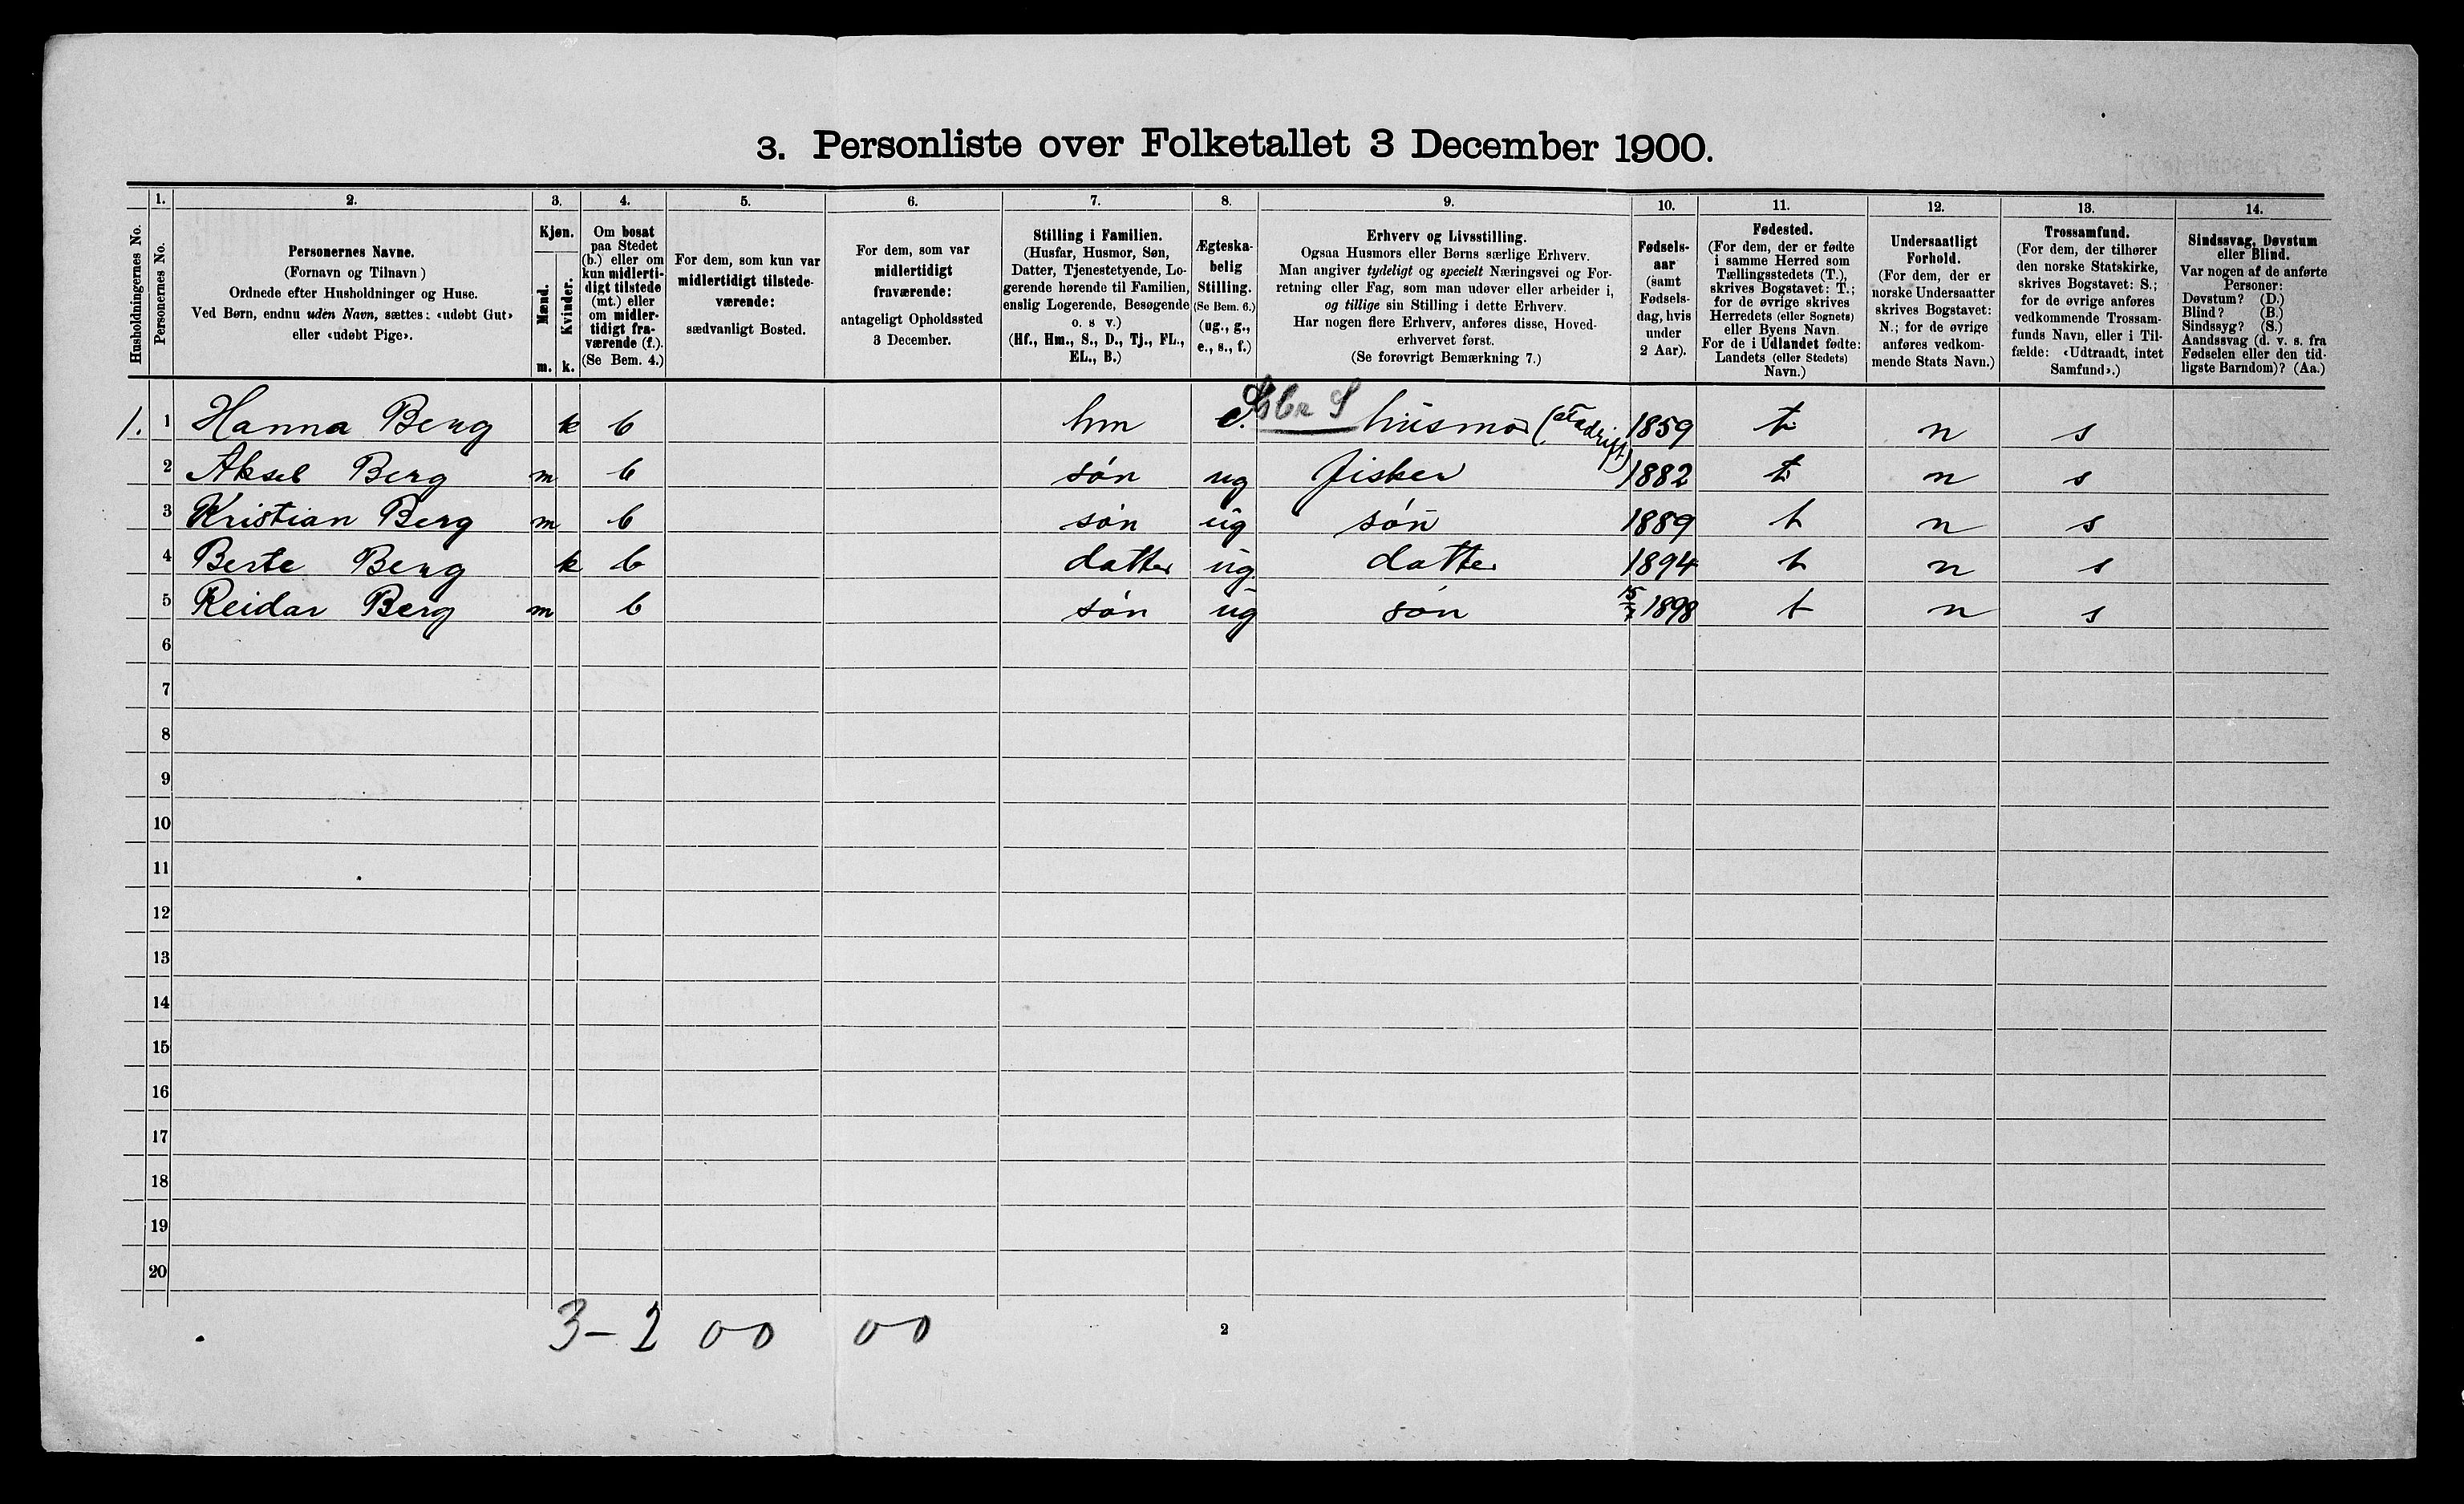 3. Personliste over Folketallet 3 December 1900.
1. 2. 3. 4. 5. 6. 7. 8. 9. 10. 11. 12. 13. 14.
Husholdningernes No.
Personernes No.
Personernes Navne.
(Fornavn og Tilnavn)
Ordnede efter Husholdninger og Huse.
Ved Børn, endnu uden Navn, sættes: «udøbt Gut»
eller «udøbt Pige».
Kjøn.
Mænd.
Kvinder.
m. k.
Om bosat
paa Stedet
(b.) eller om
kun midlerti-
digt tilstede
(mt.) eller
om midler-
tidigt fra-
værende (f.).
(Se Bem. 4.)
For dem, som kun var
midlertidigt tilstede-
værende:
sædvanligt Bosted.
For dem, som var
midlertidigt
fraværende:
antageligt Opholdssted
3 December.
Stilling i Familien.
(Husfar, Husmor, Søn,
Datter, Tjenestetyende, Lo-
gerende hørende til Familien,
enslig Logerende, Besøgende
o. s v.)
(Hf., Hm., S., D., Tj., FL.,
EL., B.)
Ægteska-
belig
Stilling.
(Se Bem. 6.)
(ug., g.,
e., s., f.)
Erhverv og Livsstilling.
Ogsaa Husmors eller Børns særlige Erhverv.
Man angiver tydeligt og specielt Næringsvei og For-
retning eller Fag, som man udøver eller arbeider i,
og tillige sin Stilling i dette Erhverv.
Har nogen flere Erhverv, anføres disse, Hoved-
erhvervet først.
(Se forøvrigt Bemærkning 7.)
Fødsels-
aar
(samt
Fødsels-
dag, hvis
under
2 Aar).
Fødested.
(For dem, der er fødte
i samme Herred som
Tællingsstedets (T.),
skrives Bogstavet: T.;
for de øvrige skrives
Herredets (eller Sognets)
eller Byens Navn.
For de i Udlandet fødte:
Landets (eller Stedets)
Navn.)
Undersaatligt
Forhold.
(For dem, der er
norske Undersaatter
skrives Bogstavet:
N.; for de øvrige
anføres vedkom-
mende Stats Navn.)
Trossamfund.
(For dem, der tilhører
den norske Statskirke,
skrives Bogstavet: S.;
for de øvrige anføres
vedkommende Trossam-
funds Navn, eller i Til-
fælde: «Udtraadt, intet
Samfund».)
Sindssvag, Døvstum
eller Blind.
Var nogen af de anførte
Personer:
Døvstum? (D.)
Blind? (B.)
Sindssyg? (S.)
Aandssvag (d. v. s. fra
Fødselen eller den tid-
ligste Barndom)? (Aa.)
1. 1 Hanna Berg k b hm e. husmor 1859 t n s
2 Aksel Berg m b søn ug fisker 1882 t n s
3 Kristian Berg m b søn ug søn 1889 t n s
4 Berte Berg k b datter ug datter 1894 t n s
5 Reidar Berg m b søn ug søn 15/7 1898 t n s
6
7
8
9
10
11
12
13
14
15
16
17
18
19
20
3-2 00 00
2